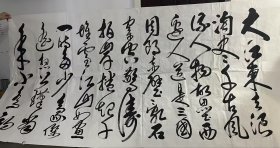 大江東去浪
淘盡千古風
流人物故壘西
邊人道是三國
周郎赤壁亂石
穿空驚濤
拍岸捲起千
堆雪江山如畫
一時多少豪傑
遙想公瑾當
年小喬初